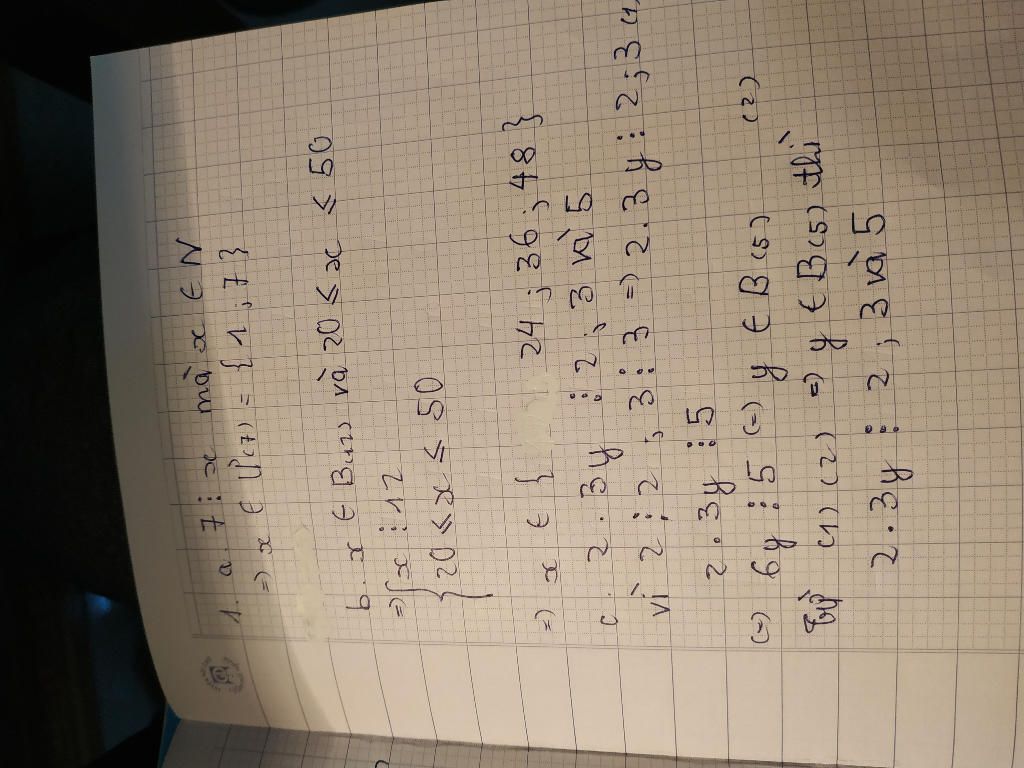 1. a. 7 ⋮ x mà x ∈ N
=> x ∈ Ư(7) = { 1 ; 7 }
b. x ∈ B(12) và 20 ≤ x ≤ 50
=> { x ⋮ 12
{ 20 ≤ x ≤ 50
=> x ∈ { 24 ; 36 ; 48 }
c. 2 . 3y ⋮ 2 ; 3 và 5
vì 2 ⋮ 2 ; 3 ⋮ 3 => 2 . 3 y ⋮ 2 ; 3 (1)
2 . 3y ⋮ 5
(=) 6y ⋮ 5 (=) y ∈ B(5) (2)
Từ (1) (2) => y ∈ B(5) thì
2 . 3y ⋮ 2 ; 3 và 5